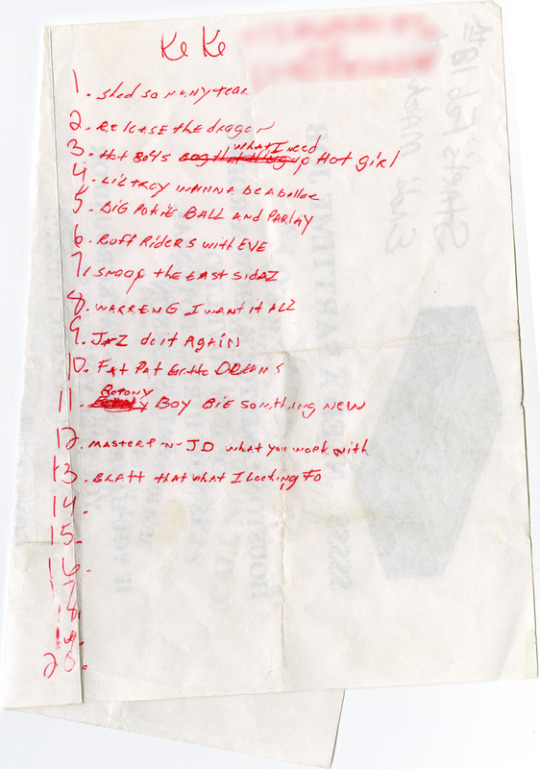 Ke Ke
1. shed so many tear
2. RELEASE the dragon
3. Hot Boys what I need up Hot girl
4. Lil troy wanna be a baller
5. BIG POKIE BALL AND PARLAY
6. Ruff Riders with EVE
7. snoop the East sidaz
8. WARREN G I WANT it ALL
9. JAZ do it Again
10. Fat Pat Ghetto DREAMS
11. Botony BOY BIE something NEW
12. MASTER P -N- JD what you work with
13. BRATT that what I looking Fo
14.
15.
16.
17.
18.
19.
20.